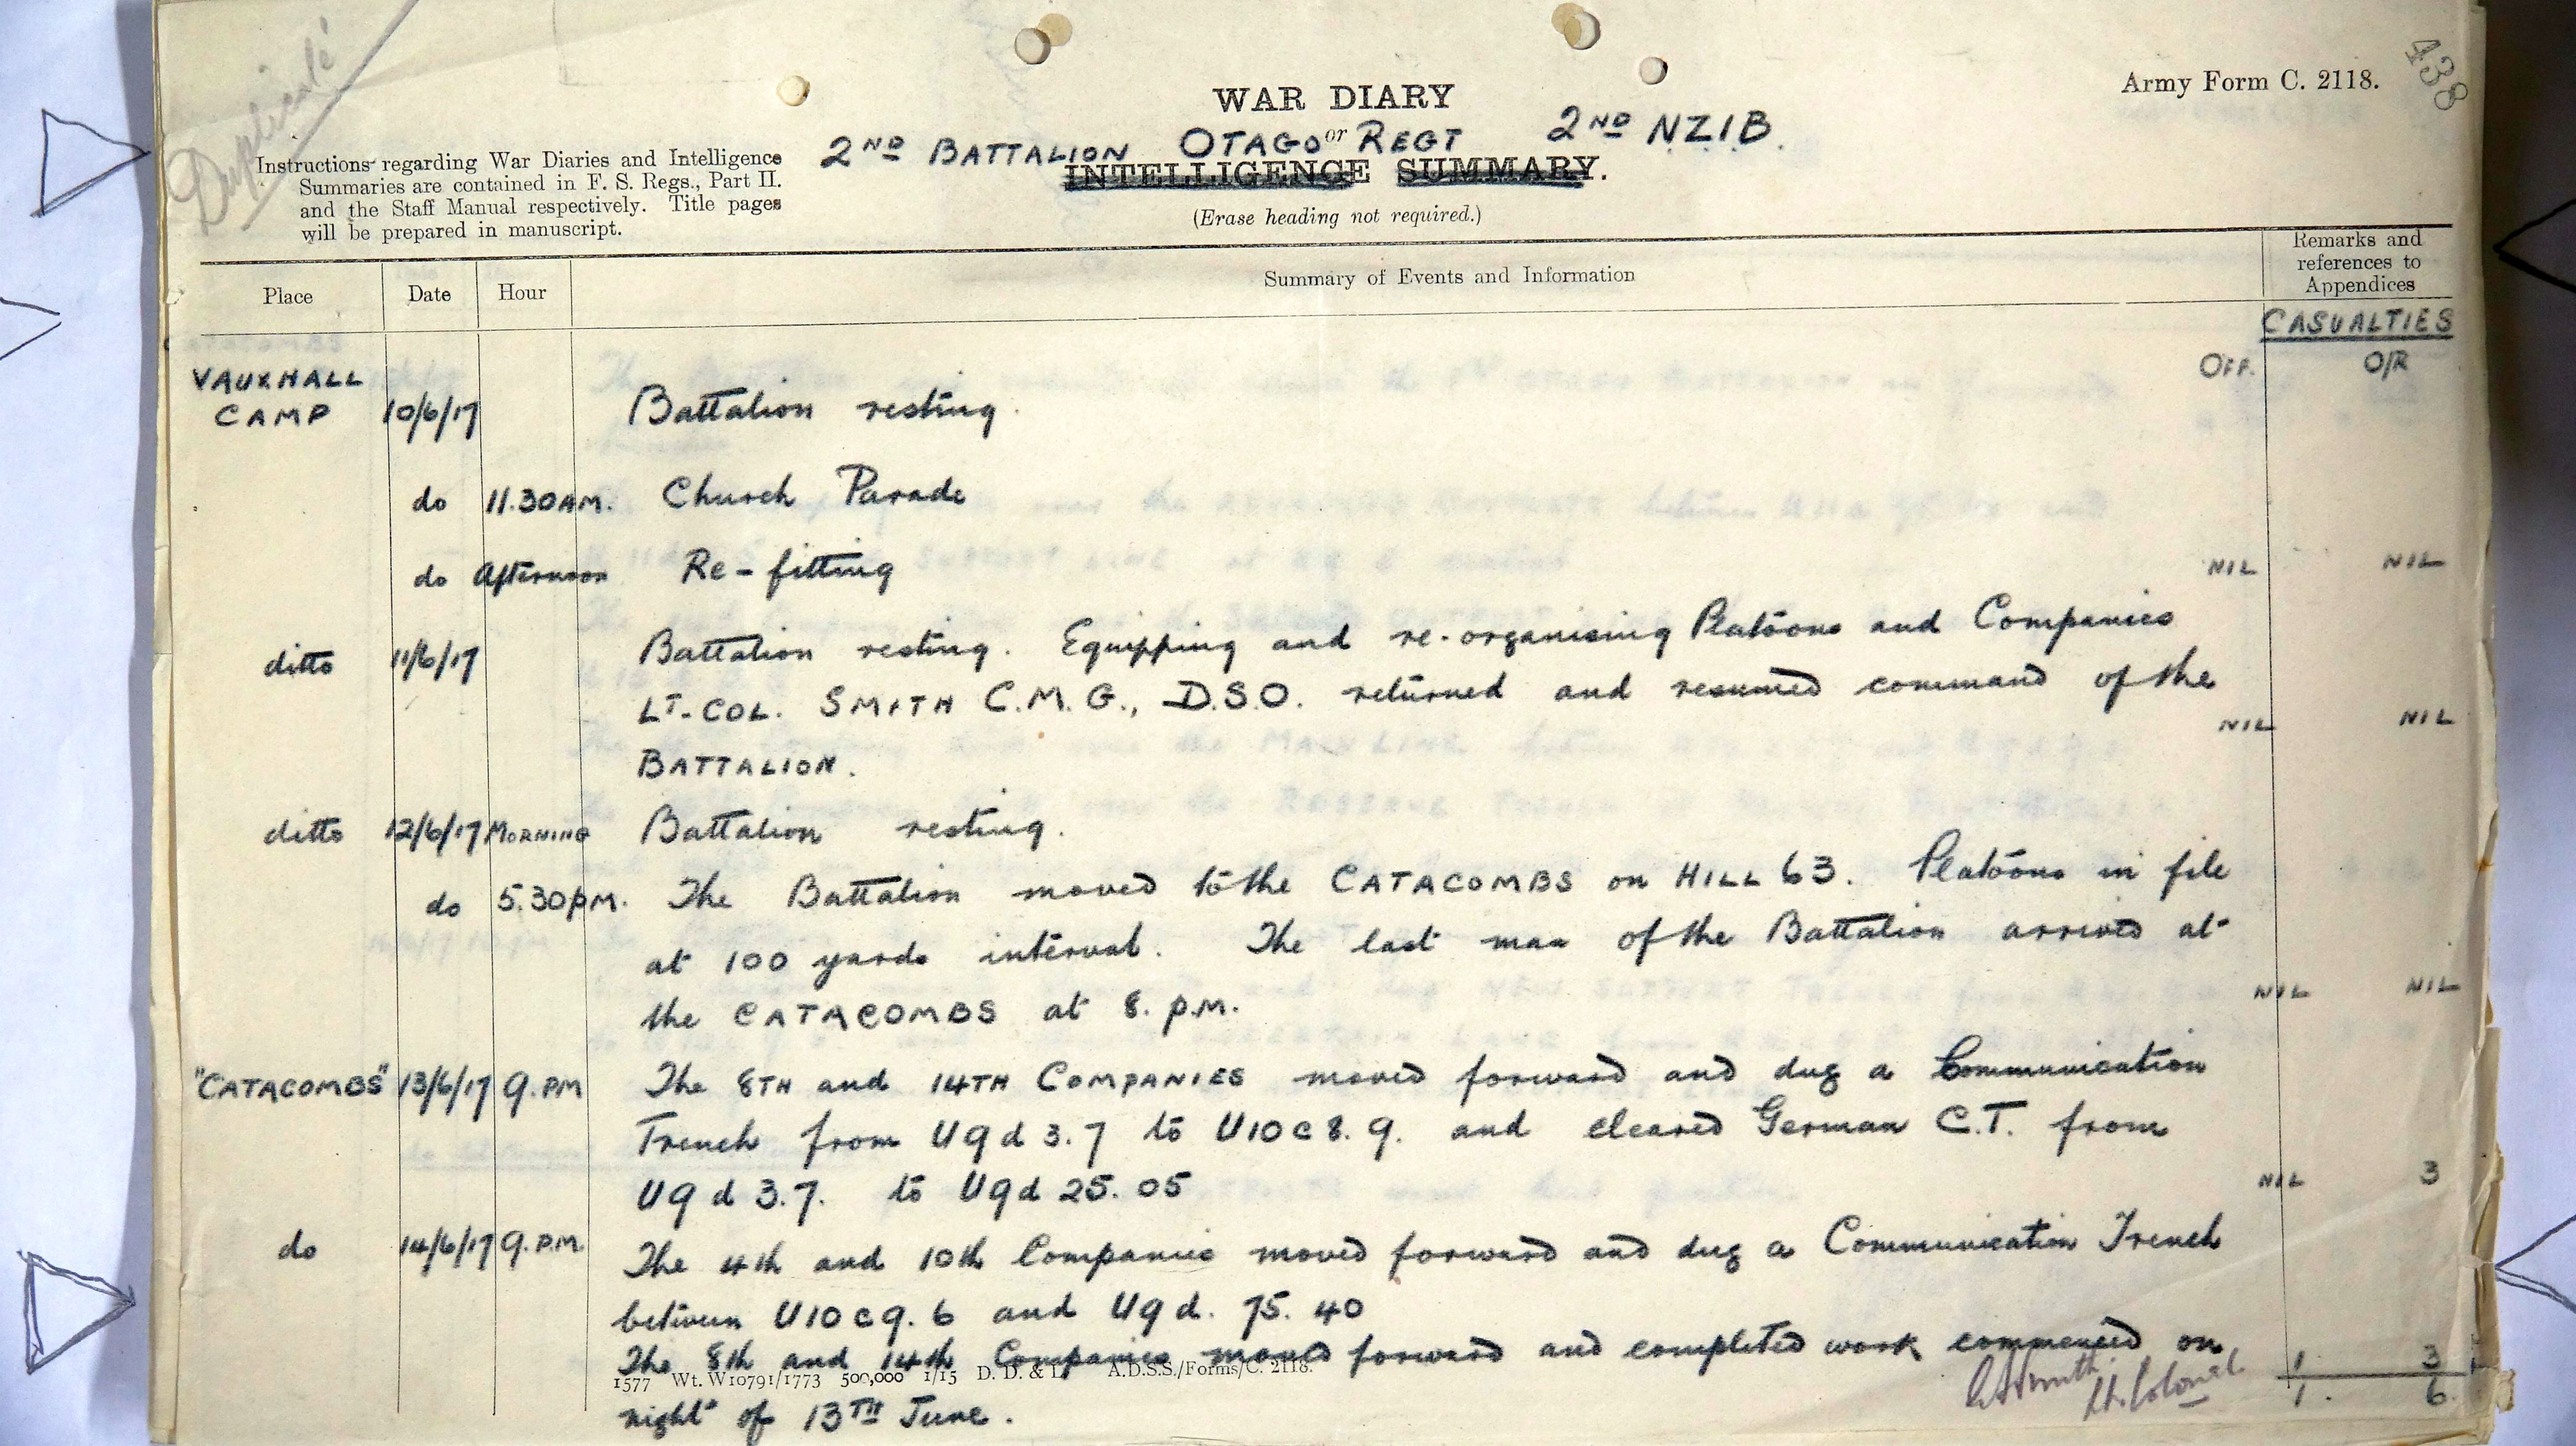 Duplicate
438
Army Form C. 2118.
WAR DIARY
2ND BATTALION OTAGO or REGT 2ND NZIB.
INTELLIGENCE SUMMARY.
(Erase heading not required.)
Instructions regarding War Diaries and Intelligence
Summaries are contained in F. S. Regs., Part II.
and the Staff Manual respectively. Title pages
will be prepared in manuscript.
Place Date Hour Summary of Events and Information Remarks and
references to
Appendices
CASUALTIES
OFF. O/R
VAUXHALL
CAMP 10/6/17 Battalion resting.
do 11.30AM. Church Parade
do Afternoon Re-fitting NIL NIL
ditto 11/6/17 Battalion resting. Equipping and re-organising Platoons and Companies
LT-COL. SMITH C.M.G., D.S.O. returned and resumed command of the
NIL NIL
BATTALION.
ditto 12/6/17 MORNING Battalion resting.
do 5.30pM. The Battalion moved to the CATACOMBS on HILL 63. Platoons in file
at 100 yards interval. The last man of the Battalion arrived at
the CATACOMBS at 8. p.M. NIL NIL
"CATACOMBS" 13/6/17 9.PM The 8TH and 14TH COMPANIES moved forward and dug a Communication
Trench from U9d 3.7 to U10c8.9. and cleared German C.T. from
U9d 3.7. to U9d 25.05 NIL 3
do 14/6/17 9.P.M. The 4th and 10th Companies moved forward and dug a Communication Trench
between U10c9.6 and U9d. 75.40
The 8th and 14th Companies moved forward and completed work commenced on 1 3
1577 Wt. W10791/1773 500,000 1/15 D. D. & L. A.D.S.S./Forms/C. 2118.
night of 13TH June. Smith Lt. Colonel 1. 6.